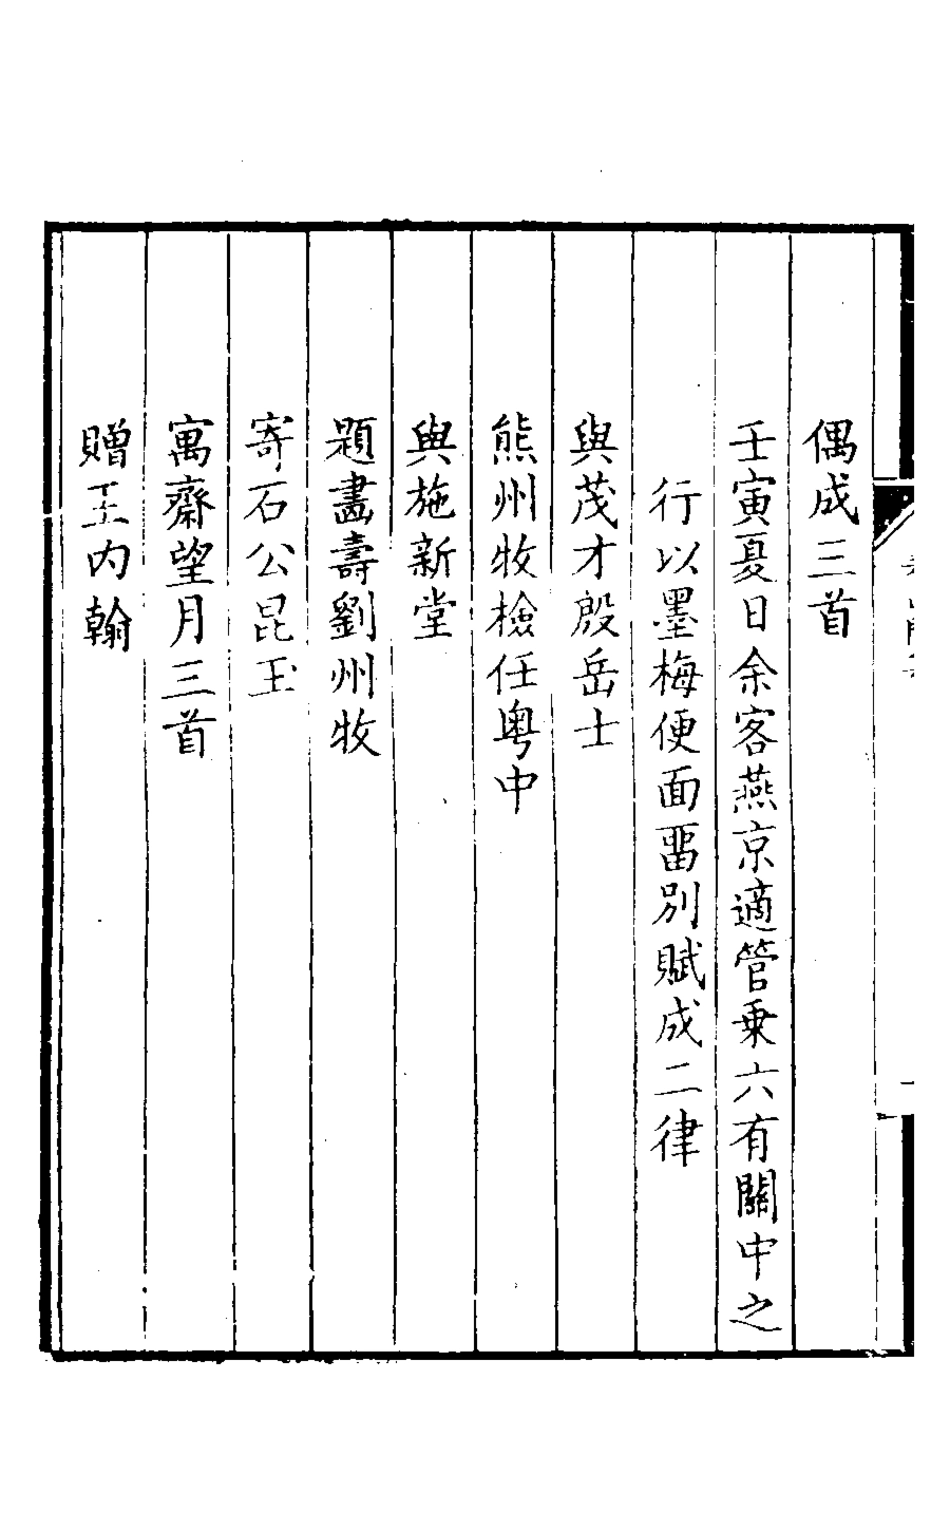 偶成三首
壬寅夏日余客燕京適管乗六有關中之
行以墨梅便面畱別賦成二律
與茂才殷岳士
熊州牧檢任粤中
與施新堂
題畵壽劉州牧
寄石公昆玉
寓齋望月三首
贈王内翰